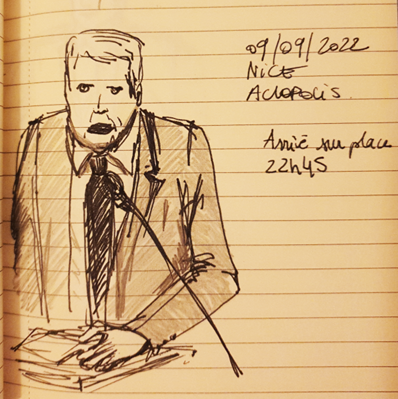 09/09/2022
NiCE
ACROPOLiS.
Arrivé sur place
22h45